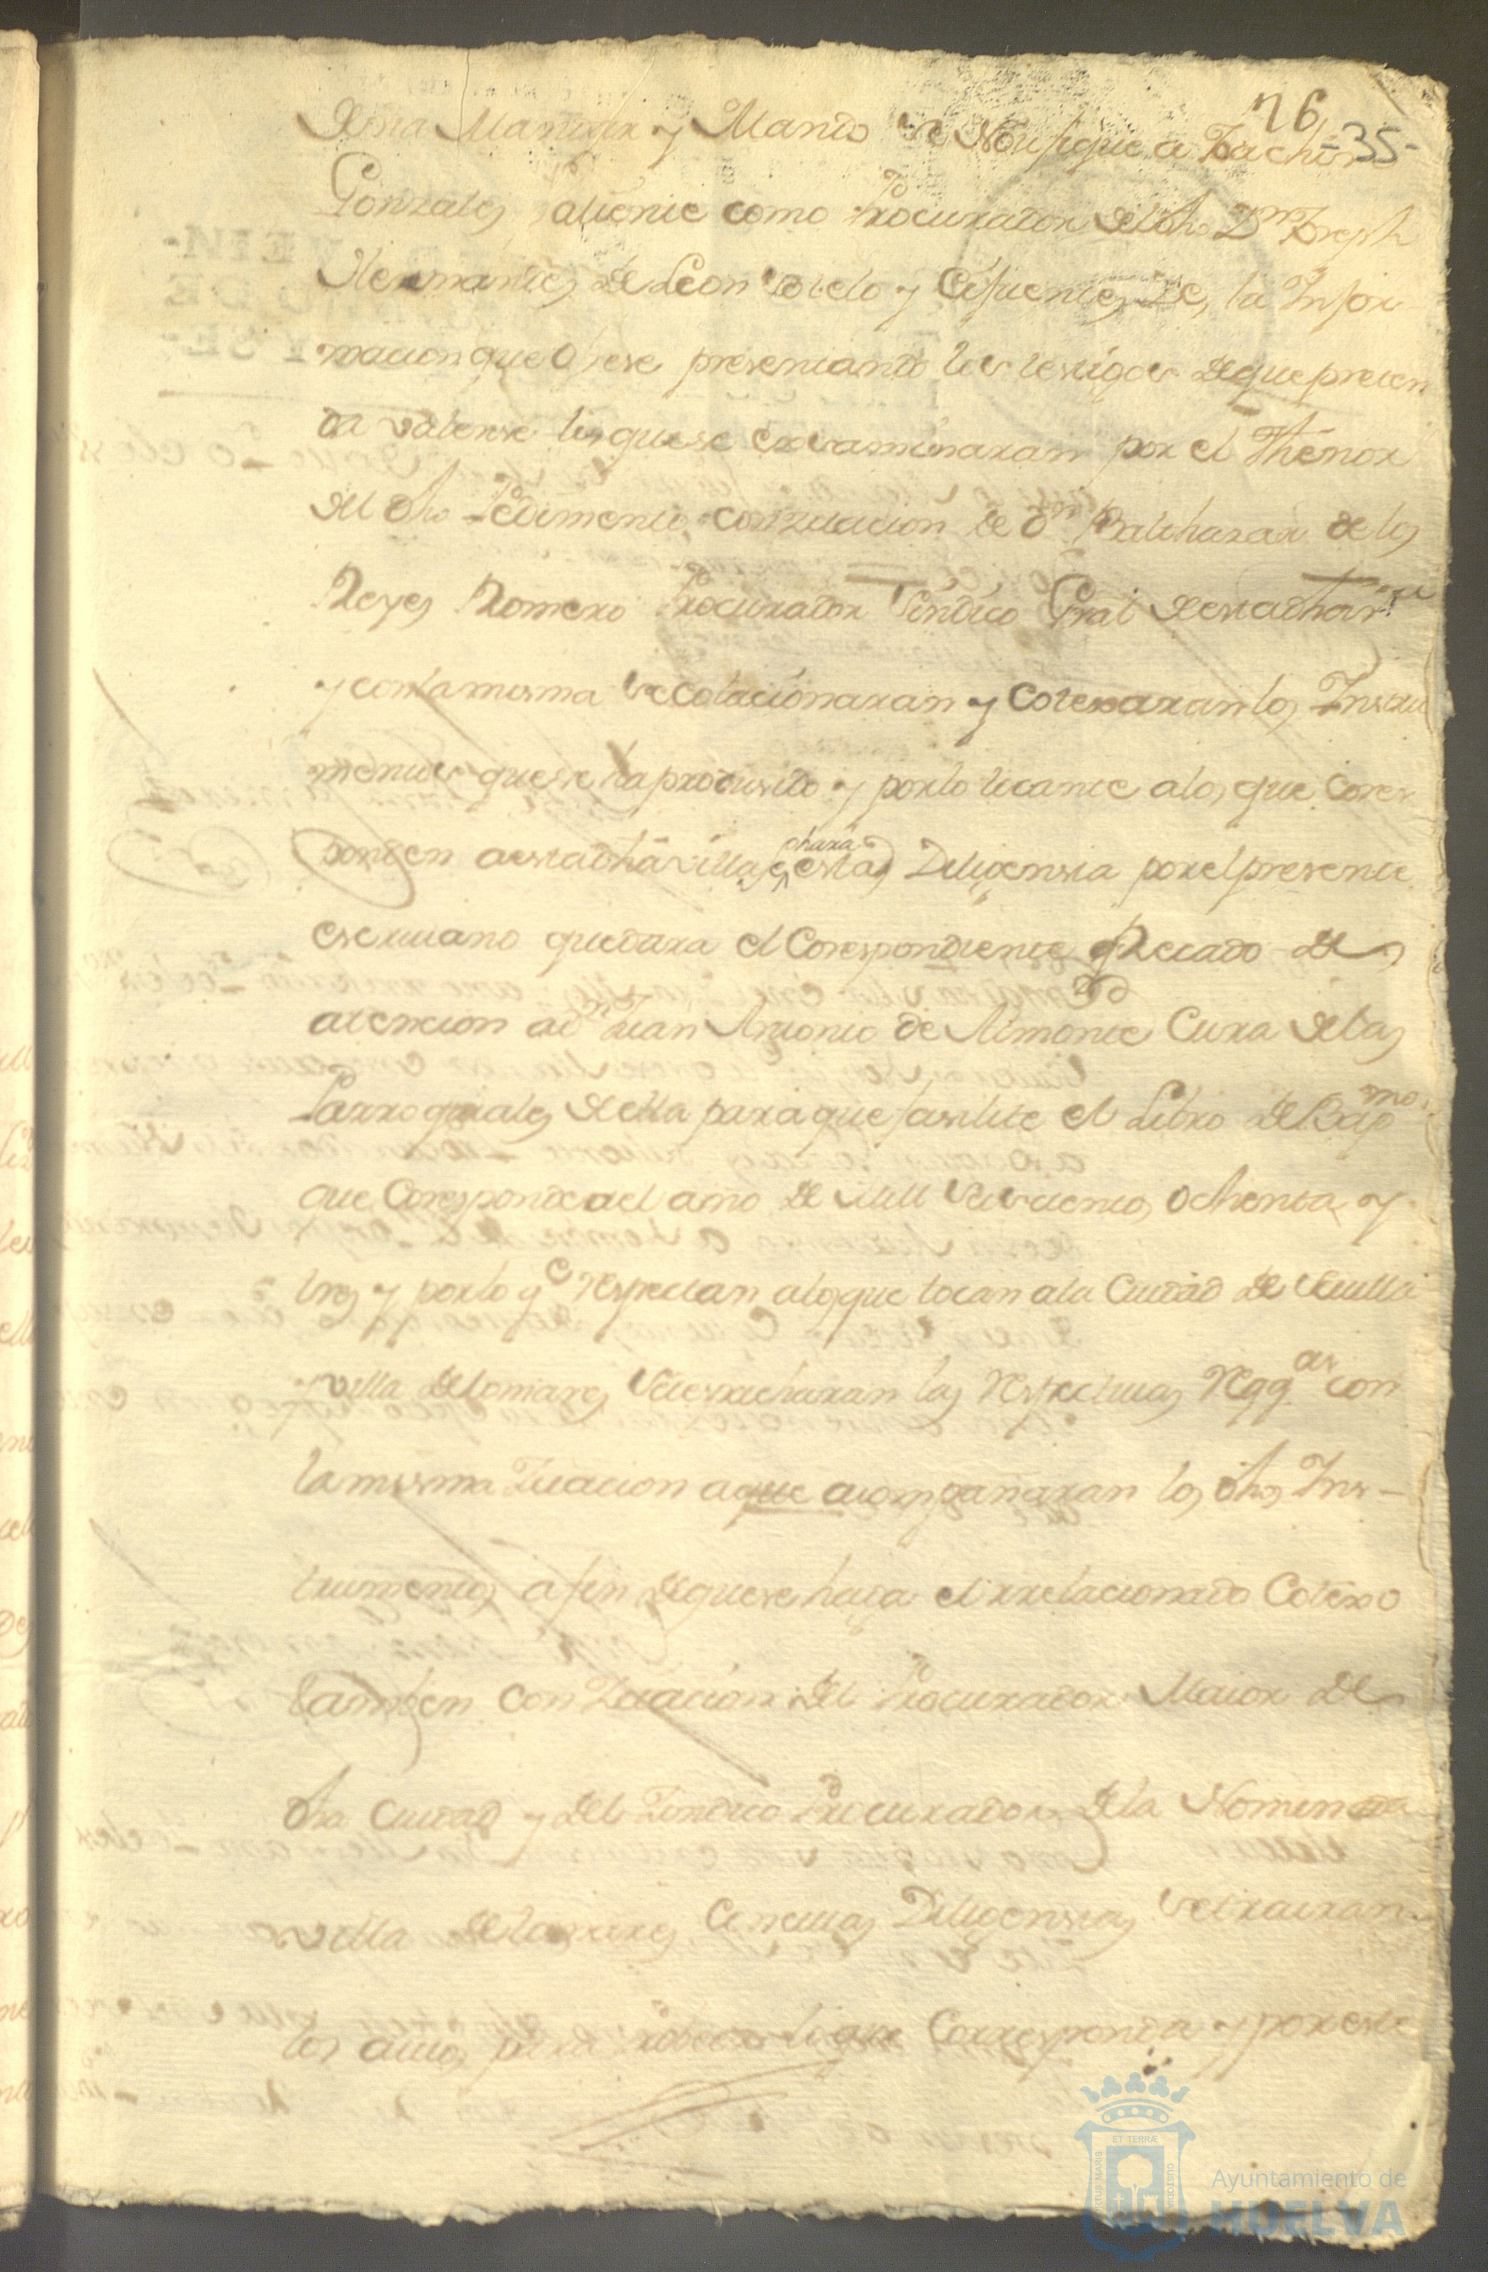 76
-35-
Gonzales Saliente como Procurador del dho Dn Joseph
Hernandes de Leon Sotelo y Cifuentes De, la Infor
macion que Ofrese presentando los testigos de que preten
da valerse los que se exsaminaran por el Thenor
del dho Pedimento, con zitacion de Dn Balthazar de los
Reyes Romero Procurador Sindico Gral de esta dha
y con la misma se colacionaran y Cotexaran los Instru
mentos que se ha produsido y por lo tocante a los que Cores
ponden a esta dha villa, esta Diligensia por el presente
escriuano quedara el Corespondiente Recado de
atencion a Dn Juan Antonio de Aimonte Cura de las
Parroquiales de ella para que fasilite el Libro de Bapmos
que Coresponde al año de Mill Seiscientos Ochenta y
tres y por lo qe respectan a los que tocan a la Ciudad de Seuilla
villa de tomares Se despacharan las respectiuas con
la misma zitacion a que acompañaran los dhos Ins-
trumentos a fin de que se haga el rrelacionado Cotexo
tambien con Zitacion del Procurador Maior de
dha Ciudad y del Zindico Procurador de la Nominada
villa de tomares, Diligensias se traeran
los autos para prober lo que Corresponda y por este
ET TERRÆ
PORTUS MARIS
CUSTODIA
Ayuntamiento de
HUELVA